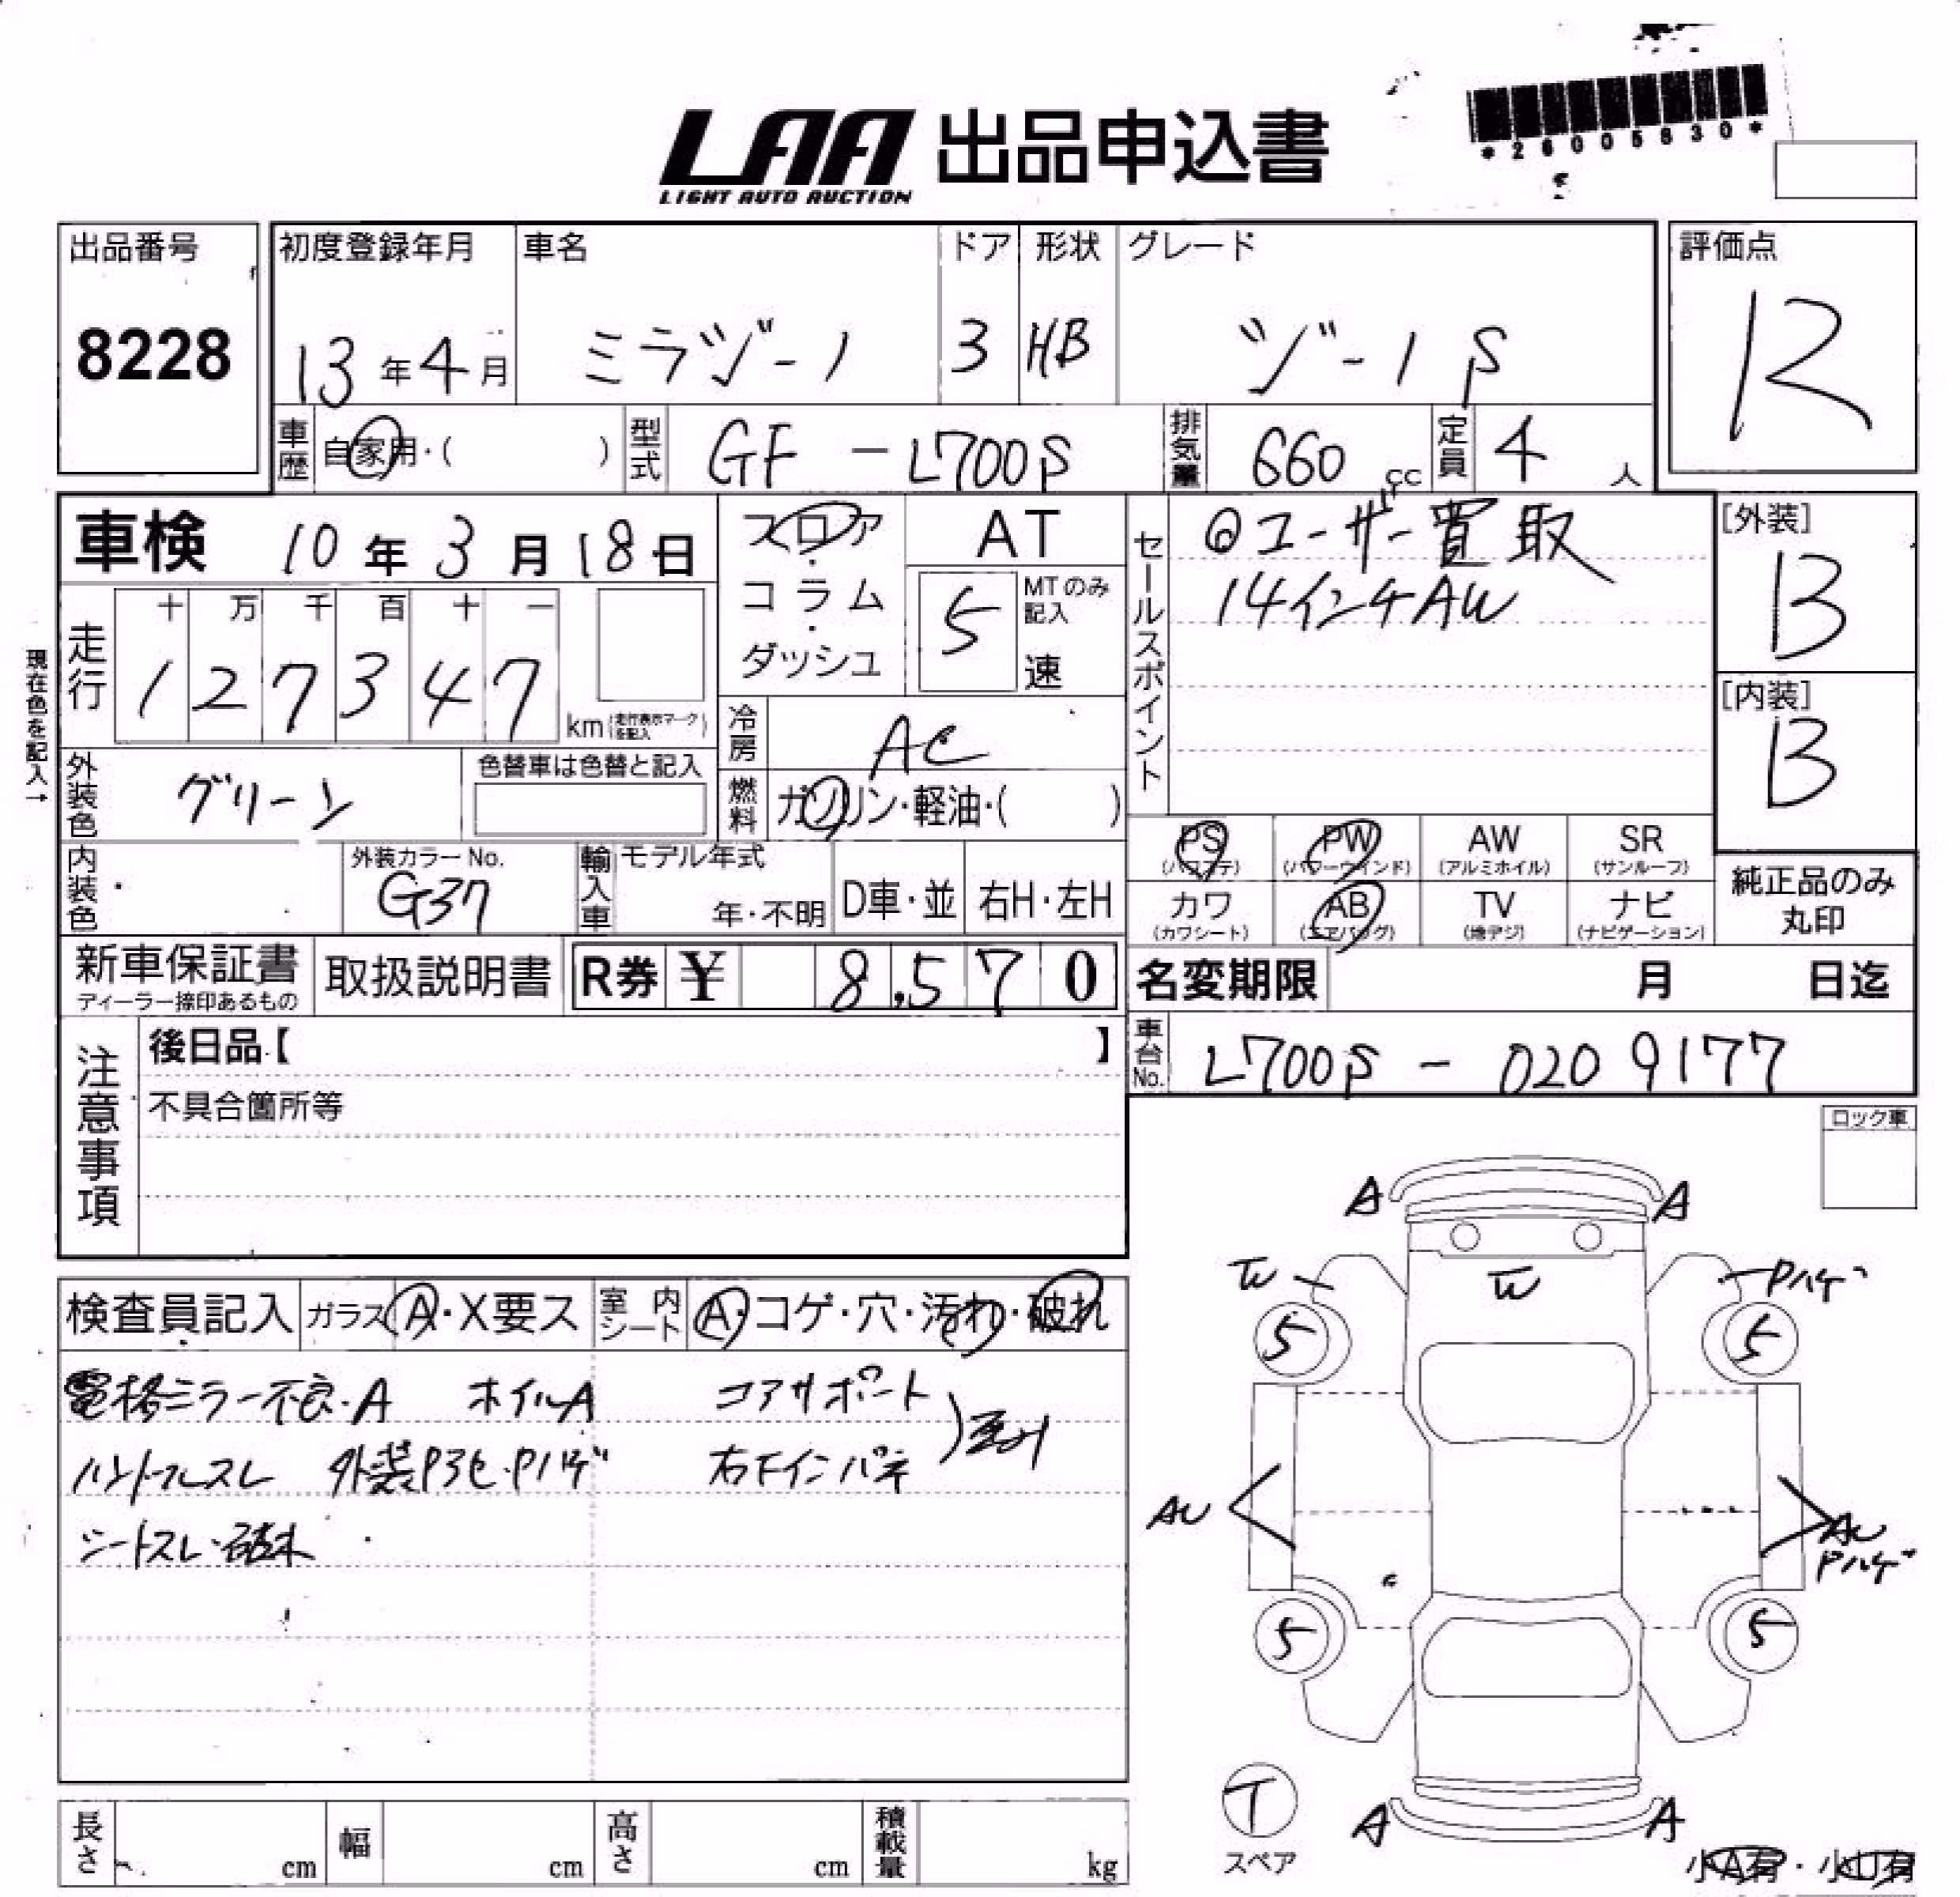 LAA 出品申込書
LIGHT AUTO AUCTION
*26005830*
出品番号
8228
初度登録年月
13年4月
車名
ミラジーノ
ドア
3
形状
HB
グレード
ジーノ S
評価点
R
車歴 自家用・( )
型式 GF - L700S
排気量 660 cc
定員 4 人
車検 10年3月18日
フロア・コラム・ダッシュ
AT
5 速
MTのみ記入
セールスポイント
◎ユーザー買取
14インチAW
[外装]
B
[内装]
B
現在色を記入→
走行
十 万 千 百 十 一
1 2 7 3 4 7 km (走行表示マークを記入)
冷房 AC
燃料 ガソリン・軽油・( )
外装色 グリーン
色替車は色替と記入
内装色
外装カラーNo.
G37
輸入車 モデル年式
年・不明
D車・並
右H・左H
PS (パワステ)
PW (パワーウインド)
AW (アルミホイル)
SR (サンルーフ)
カワ (カワシート)
AB (エアバッグ)
TV (地デジ)
ナビ (ナビゲーション)
純正品のみ
丸印
新車保証書
ディーラー捺印あるもの
取扱説明書
R券 ¥ 8,570
名変期限 月 日迄
車台No. L700S - 0209177
注意事項
後日品【 】
不具合箇所等
ロック車
検査員記入
ガラス A・X要ス
室内シート A・コゲ・穴・汚れ・破れ
電格ミラー不良・A ホイルA コアサポート
ハンドルスレ 外装P3セ・Pハゲ 右Fインパネ
シートスレ・破れ
A A
W W Pハゲ
5 5
AU AU
Pハゲ
5 5
T
スペア
A A
小A有・小U有
長さ cm
幅 cm
高さ cm
積載量 kg